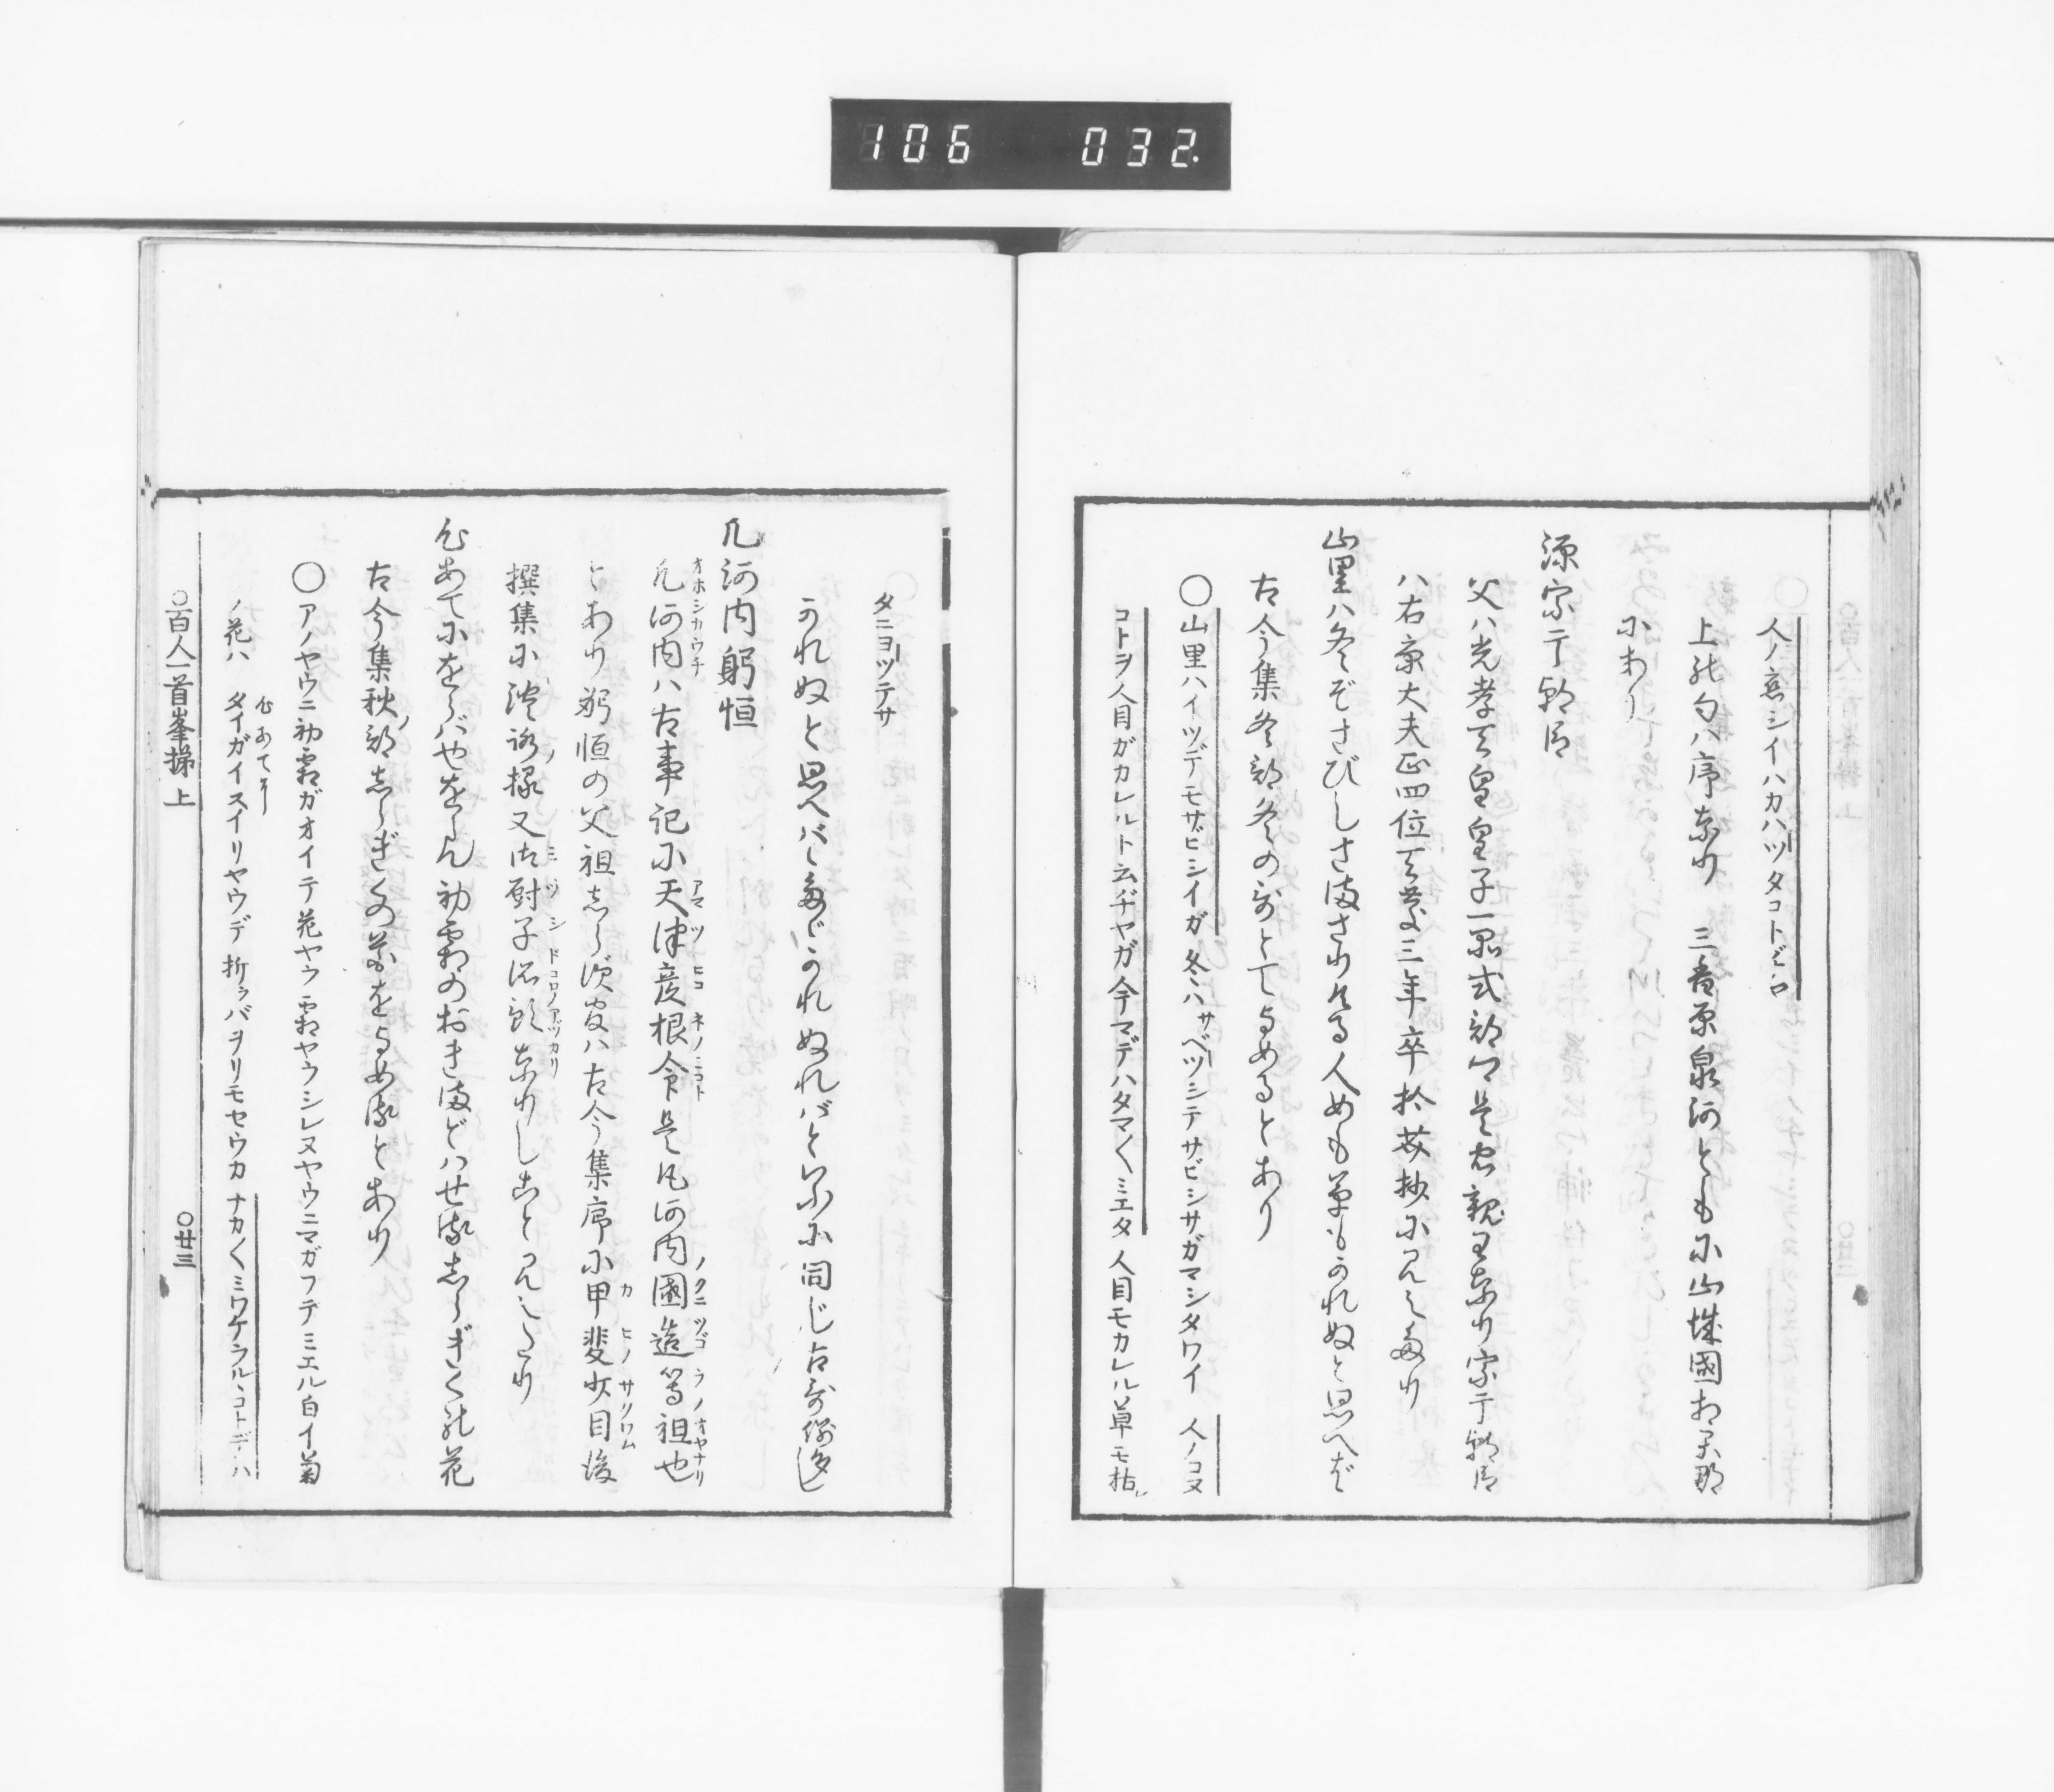 106 032.
人ノ恋シイハカハツタコトジヤロ
上の句ハ序なり 三番原泉河ともに山城國相楽郡
にあり
源宗于朝臣
父ハ光孝天皇皇子一品式部卿是忠親王なり宗于朝臣
ハ右京大夫正四位下天慶三年卒於莚抄に見えたり
山里ハ冬ぞさびしさまさりける人めも草もかれぬと思へば
古今集冬部冬の哥とてよめるとあり
〇山里ハイツデモサビシイガ冬ハサベツシテサビシサガマシタワイ 人ノコヌ
コトヲ人目ガカレルト云ヂヤガ今マデハタマ〱ミエタ人目モカレル草モ枯レ
タニヨツテサ
かれぬと思へバハかれぬれバといふに同じ古哥例多し
凡河内躬恒
凡河内ハ古事記に天津彦根命是凡河内國造等祖也
オホシカウチ アマツヒコネノミコト ノクニツコラノオヤナリ
とあり躬恒の父祖しら須官ハ古今集序に甲斐少目後
カヒノサクワム
撰集に淡路掾又御厨子所預なりしこと見えたり
ノ ミヅシドコロノアヅカリ
心あてにをらバやをらん初霜のおきまどハせるしらぎくの花
古今集秋ノ部しらぎくの花をよめるとあり
〇アノヤウニ初霜ガオイテ花ヤウ霜ヤウシレヌヤウニマガフテミエル白イ菊
ノ花ハ タイガイスイリヤウデ折ラバヲリモセウカナカ〱ミワケラルヽコトデハ
心あてニ
〇百人一首峯梯 上 〇廿三